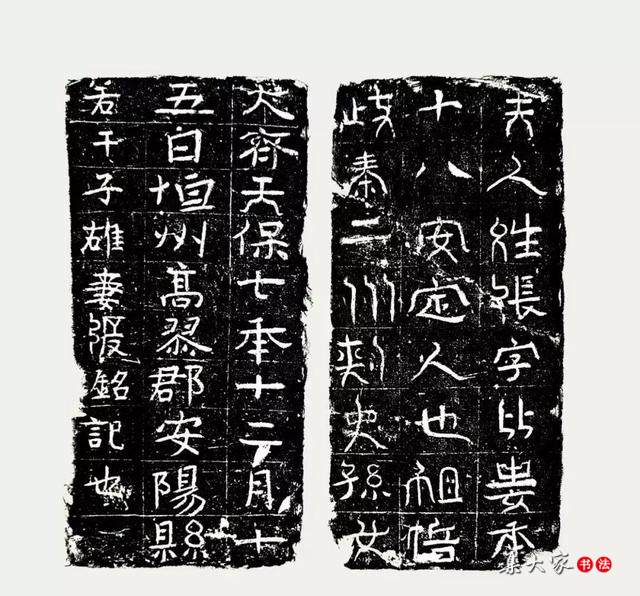 夫人姓張字比婁年
十八安定人也祖
岐秦二州刾史孫女
大齊天保七年十二月十
五日恒州高郡安陽縣
若干子雄妻張銘記也
集大家
书法